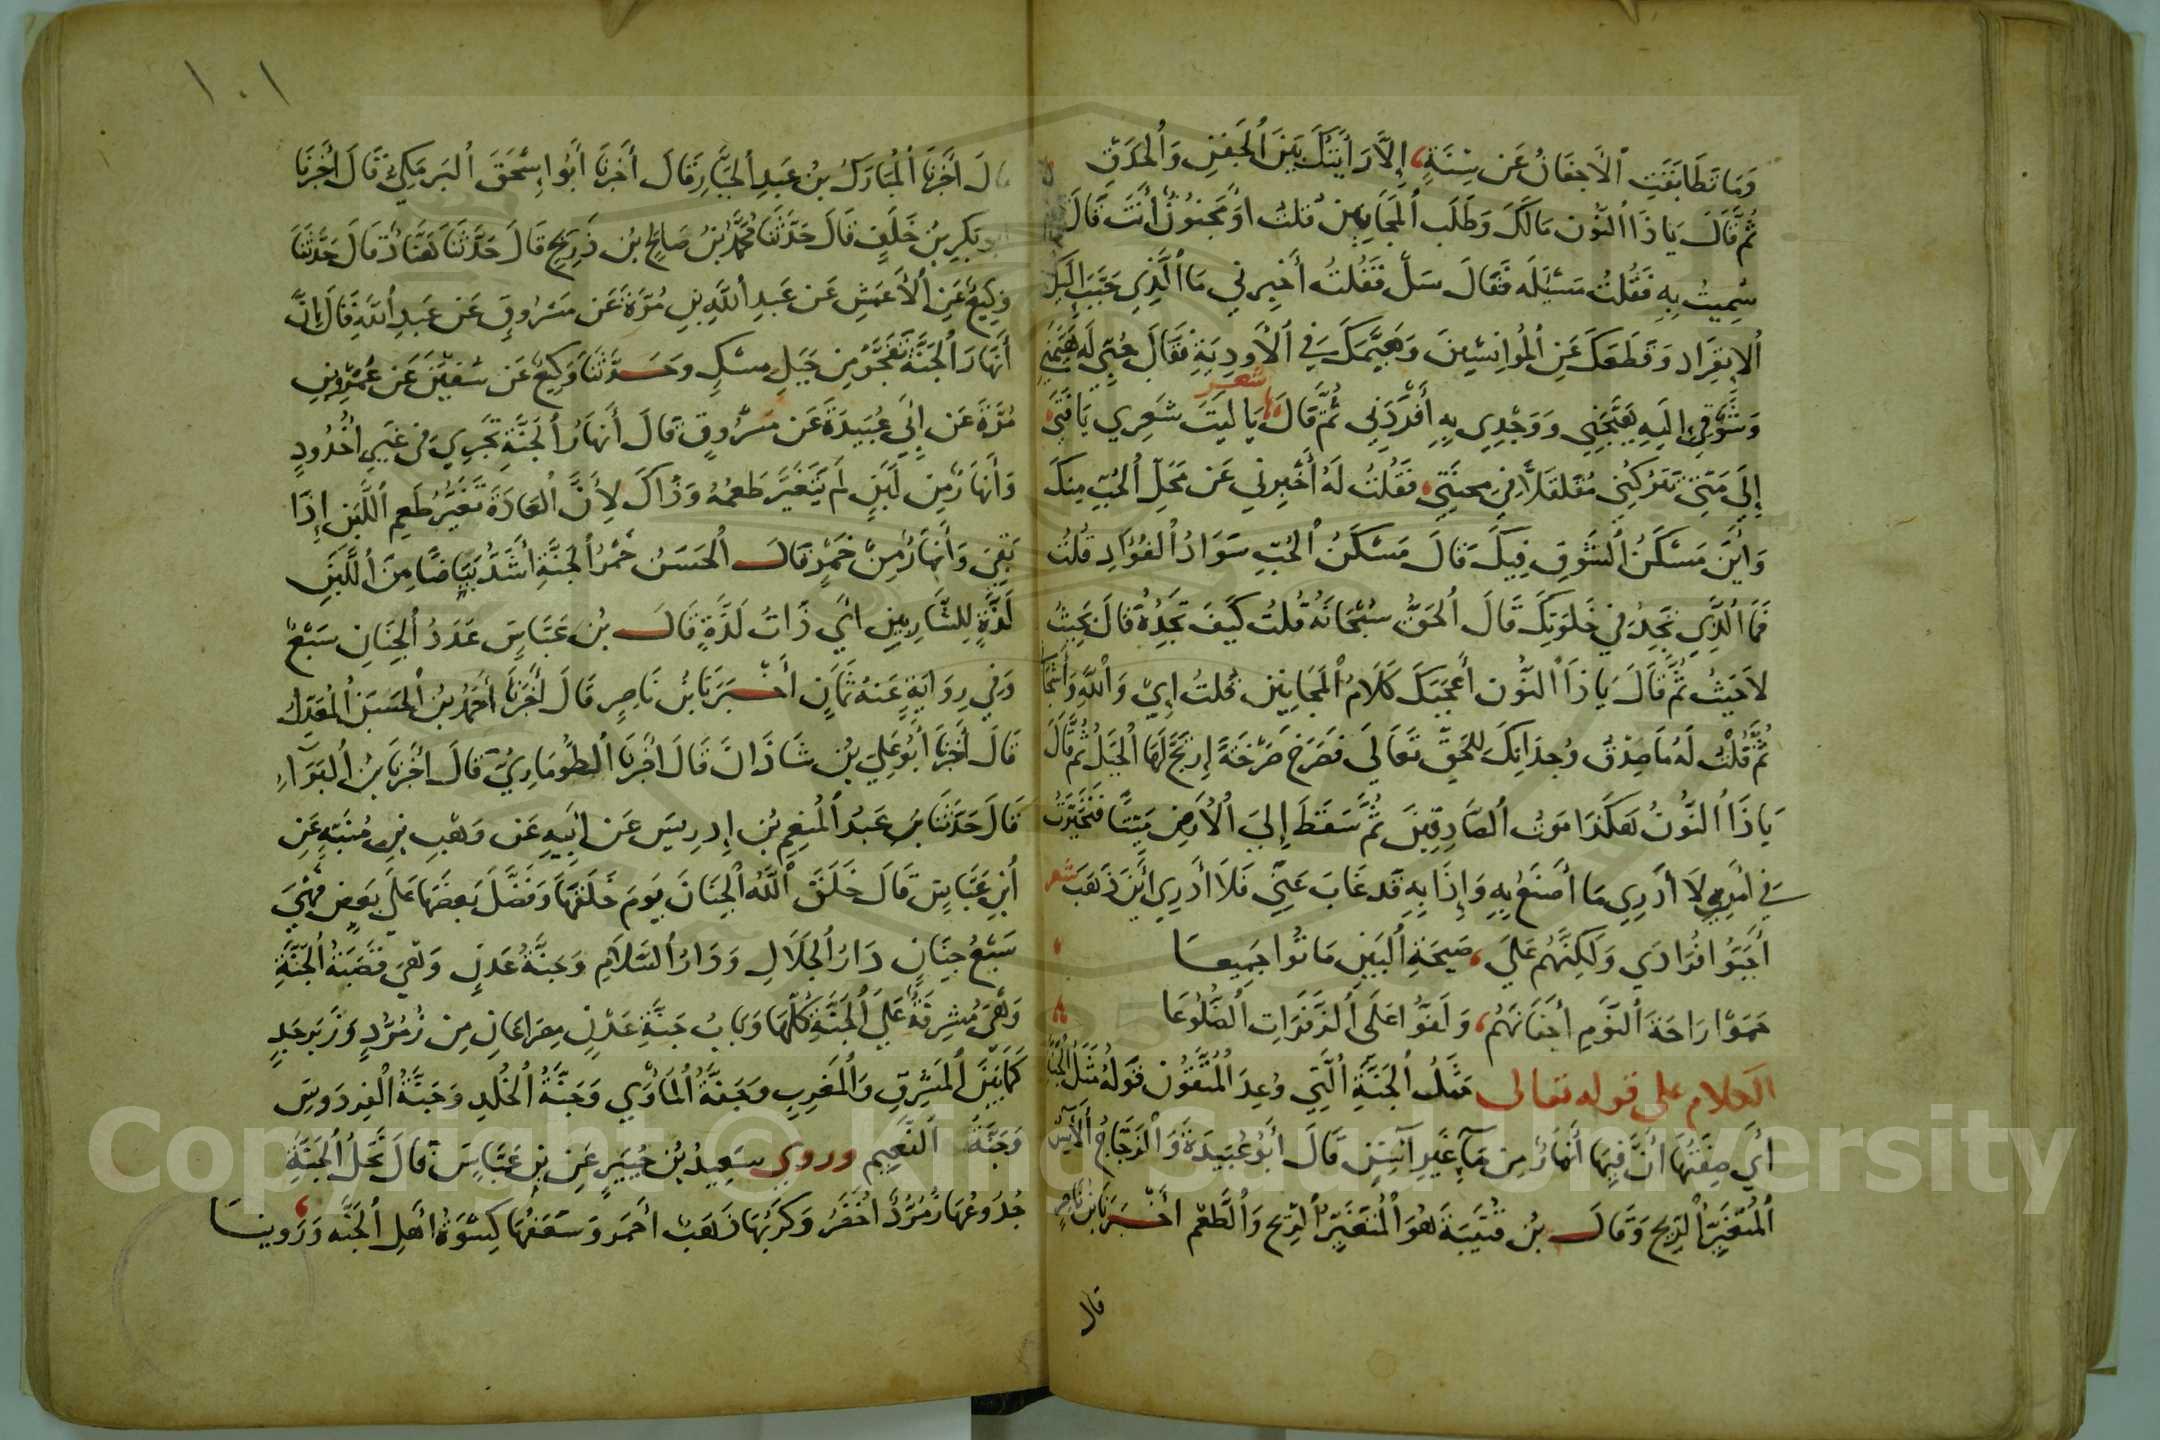 وَمَا تَطَابَقَتِ ٱلْأَجفَانُ عَن سِنَةٍ، إِلَّا رَأَيتُكَ بَينَ ٱلْجَفنِ وَٱلْحَدَقِ
ثُمَّ قَالَ يَاذَا ٱلنُّون مَالَكَ وَطَلَب ٱلمَجَانِين قُلتُ اوَمَجنوُنٌ أَنتَ قَالَ
سُمِيتُ بِهِ فَقُلتُ مَسْئَلَه فَقَالَ سَل فَقُلتُ أَخبِرني مَا ٱلَّذِي حَبَّبَ اِلَيكَ
ٱلاِنفِرَاد وَقَطَعَكَ عَنِ ٱلمُوانِسِينَ وَهَيَّمَكَ فِي ٱلْأَودِيَةِ فَقَالَ حُبِّي لَه هَيَّمَنِي
وَشَوقِي اِلَيهِ هَيَّجَنِي وَوَجْدِي بِهِ أَفْرَدَنِي ثُمَّ قَالَ شعر يَا لَيتَ شَعرِي يَا فَتَى
إِلَى مَتَى تَترُكُنِي مُقَلقَلاً فِي مِحنَتِي، فَقُلتُ لَهُ أَخبِرنِي عَن مَحَلِّ ٱلحُبِّ مِنكَ
وَأَينَ مَسْكَنُ ٱلشَّوقِ فِيكَ قَالَ مَسْكَنُ ٱلْحُبِّ سَوَادُ ٱلفُؤَادِ قُلتُ
فَمَا ٱلَّذِي تَجِدُ فِي خَلوَتِكَ قَالَ ٱلحَقُّ سُبْحَانَهُ قُلتُ كَيفَ تَجِدُهُ قَالَ بِحَيثُ
لَاحَيثُ ثُمَّ قَالَ يَاذَا ٱلنُّون أَعجَبَكَ كَلَامُ ٱلمَجَانِين قُلتُ اِيْ وَٱللَّهِ وَأَشْجَاني
ثُمَّ قُلتُ لَهُ مَا صِدْقُ وُجدَانِكَ لِلحَقِّ تَعَالَى فَصَرَخَ صَرْخَةً اِرتَجَّ لَهَا ٱلْجَبَلُ ثُمَّ قَالَ
يَاذَا ٱلنُّونُ هَكَذَا مَوتُ ٱلصَّادِقِينَ ثُمَّ سَقَطَ إِلَى ٱلْأَرضِ مَيِّتًا فَتَحَيَّرتُ
فِي أَمرِهِ لَا أَدرِي مَا أَصنَعُ بِهِ وَإِذَا بِهِ قَد غَابَ عَنِّي فَلَا أَدرِي أَينَ ذَهَبَ شعر
أَجَبُوا فُؤَادَي وَلَكِنَّهُم عَلَى، صَيحَةِ ٱلبَينِ مَاتُوا جَمِيعَا
حَمَوْا رَاحَةَ ٱلنَّومِ أَجفَانَهُم، وَلَفُّوا عَلَى ٱلزَّفَرَاتِ ٱلضُّلُوعَا
الكلام على قوله تعالى مَثَلُ ٱلجَنَّةِ ٱلَّتِي وُعِدَ ٱلمُتَّقُون قَولُهُ مَثَلُ ٱلْجَنَّةِ
أَي صِفَتُهَا أَنَّ فِيهَا أَنهَارٌ مِن مَآءٍ غَيرِ آسِنٍ قَالَ أَبُو عُبَيدَةَ وَٱلزَّجَّاجُ ٱلآسِن
ٱلْمُتَغَيِّرُ ٱلرِّيحِ وَقَالَ بنُ قُتَيبَةَ هُوَ ٱلْمُتَغَيِّرُ ٱلرِّيحِ وَٱلطَّعم أَخبَرَنَا بنُ نَاصِر
قال
١٠١
قَالَ أَخبَرَنَا ٱلْمُبَارَكُ بنُ عَبدِ ٱلجَبَّارِ قَالَ أَخبَرنَا أَبُو إِسْحَقَ ٱلبَرمَكِي قَالَ أَخبَرَنَا
أبو بَكرِ بنُ خَلَفٍ قَالَ حَدَّثَنَا مُحَمَّدُ بنُ صَالِحِ بنِ ذَرِيحٍ قَالَ حَدَّثَنَا هَنَّادٌ قَالَ حَدَّثَنَا
وَكِيعٌ عَنِ ٱلْأَعمَشِ عَن عَبدِ ٱللَّهِ بنِ مُرَّةَ عَن مَسْرُوقٍ عَن عَبدِ ٱللَّهِ قَالَ إِنَّ
أَنهَارَ ٱلْجَنَّةِ تَفَجَّرُ مِن جَبَلِ مِسْكٍ وَحَدَّثَنَا وَكِيعٌ عَن سُفيَنَ عَن عَمْرِو بنِ
مُرَّةَ عَن اَبِي عُبَيدَةَ عَن مَسْرُوقٍ قَالَ أَنهَارُ ٱلجَنَّةِ تَجرِي فِي غَيرِ اُخْدُودٍ
وَأَنهَارٌ مِن لَبَنٍ لَم يَتَغَيَّر طَعمُهُ وَذَاكَ لِأَنَّ ٱلعَادَةَ تَغَيُّرُ طَعمِ ٱللَّبَنِ إِذَا
بَقِيَ وَأَنهَارٌ مِنْ خَمرٍ قَالَ ٱلحَسَنُ خَمْرُ ٱلجَنَّةِ أَشَدُّ بَيَاضًا مِنَ ٱللَّبَنِ
لَذَّةٍ لِلشَّارِبِين اَيْ ذَاتُ لَذَّةٍ قَالَ بنُ عَبَّاسٍ عَدَدُ ٱلجِنَانِ سَبْعٌ
وَفِي رِوَايَةٍ عَنهُ ثَمَانٍ أَخبَرَنَا بنُ نَاصِرٍ قَالَ أَخبَرَنَا أَحمَدُ بنُ ٱلحَسَنِ ٱلمُعَدِّل
قَالَ أَخبَرَنَا أَبُو عَلِي بنُ شَاذَانَ قَالَ اخبَرَنَا ٱلطُّومَارِيّ قَالَ اخبَرَنَا بنُ ٱلبَرَآءِ
قَالَ حَدَثَنَا عَبدُ ٱلْمُنعِمِ بنِ إِدرِيسَ عَن اَبِيهِ عَن وَهْبِ بنِ مُنَبِّهٍ عَنِ
ٱبنِ عَبَّاسٍ قَالَ خَلَقَ ٱللَّهُ ٱلْجِنَانَ يَومَ خَلَقَهَا وَفَضَّلَ بَعضَهَا عَلَى بَعضٍ فَهْيَ
سَبْعُ جِنَانٍ دَارُ ٱلجَلَالِ وَدَارُ ٱلسَّلَامِ وَجَنَّةُ عَدنٍ وَهِيَ قَصَبَةُ ٱلجَنَّةِ
وَهْيَ مُشرِفَةٌ عَلَى ٱلجَنَّةِ كُلِّهَا وَبَابُ جَنَّةِ عَدْنٍ مِصرَاعَانِ مِن زُمُرُّدٍ وَزَبَرجَدٍ
كَمَا بَينَ ٱلمَشرِقِ وَٱلمَغرِبِ وَجَنَّةُ ٱلْمَأوَي وَجَنَّةُ ٱلخُلدِ وَجَنَّةُ ٱلْفِردَوسِ
وَجَنَّةُ ٱلنَّعِيمِ وروي سَعِيدُ بنُ جُبَيرٍ عَنِ بنِ عَبَّاسٍ قَالَ نَخلُ ٱلجَنَّةِ
جُذُوعُهَا زُمُرُّدٌ اخضَرُ وَكَرَبُهَا ذَهَبٌ أَحمَر وَسَعَفُهَا كِسْوَةُ أَهلِ ٱلجَنَّه، وَرَوينَا
Copyright © King Saud University